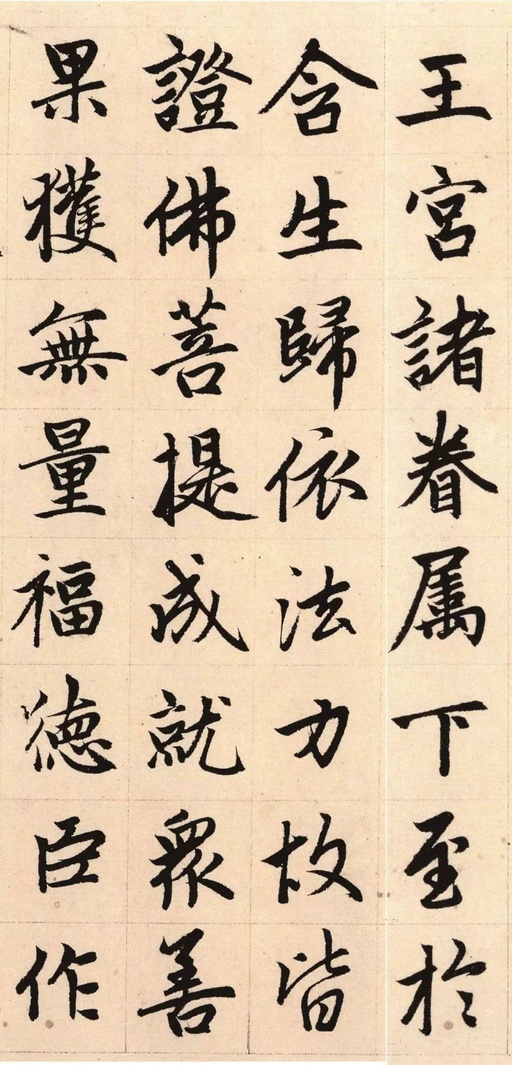 王宮諸眷属下至於
含生歸依法力故皆
證佛菩提成就衆善
果獲無量福德臣作